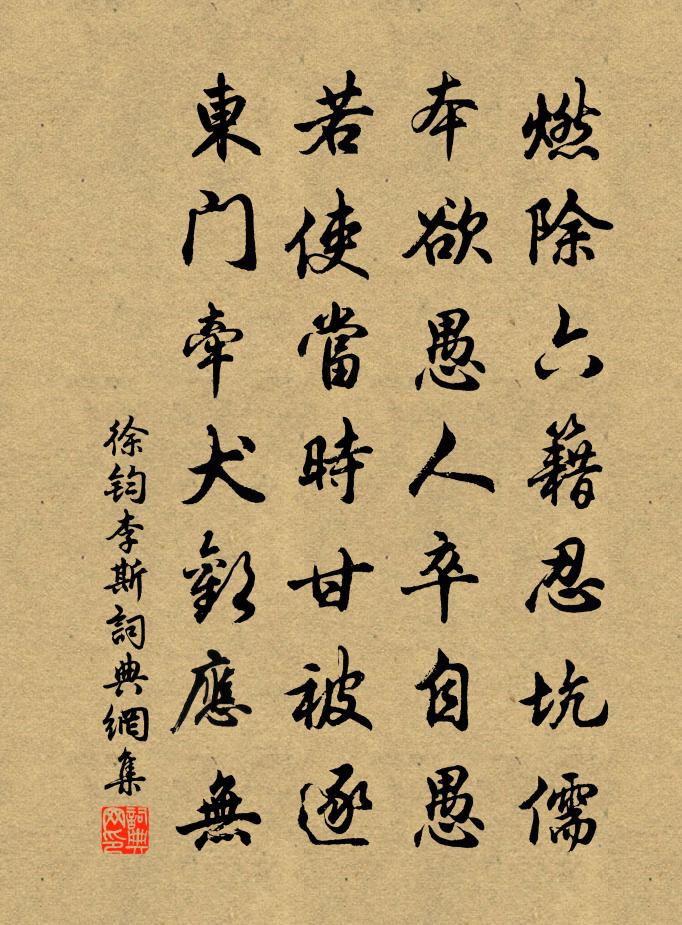 燃除六籍忍坑儒
本欲愚人卒自愚
若使當時甘被逐
東门牽犬歎應無
徐钧李斯詞典網集
詞典网印